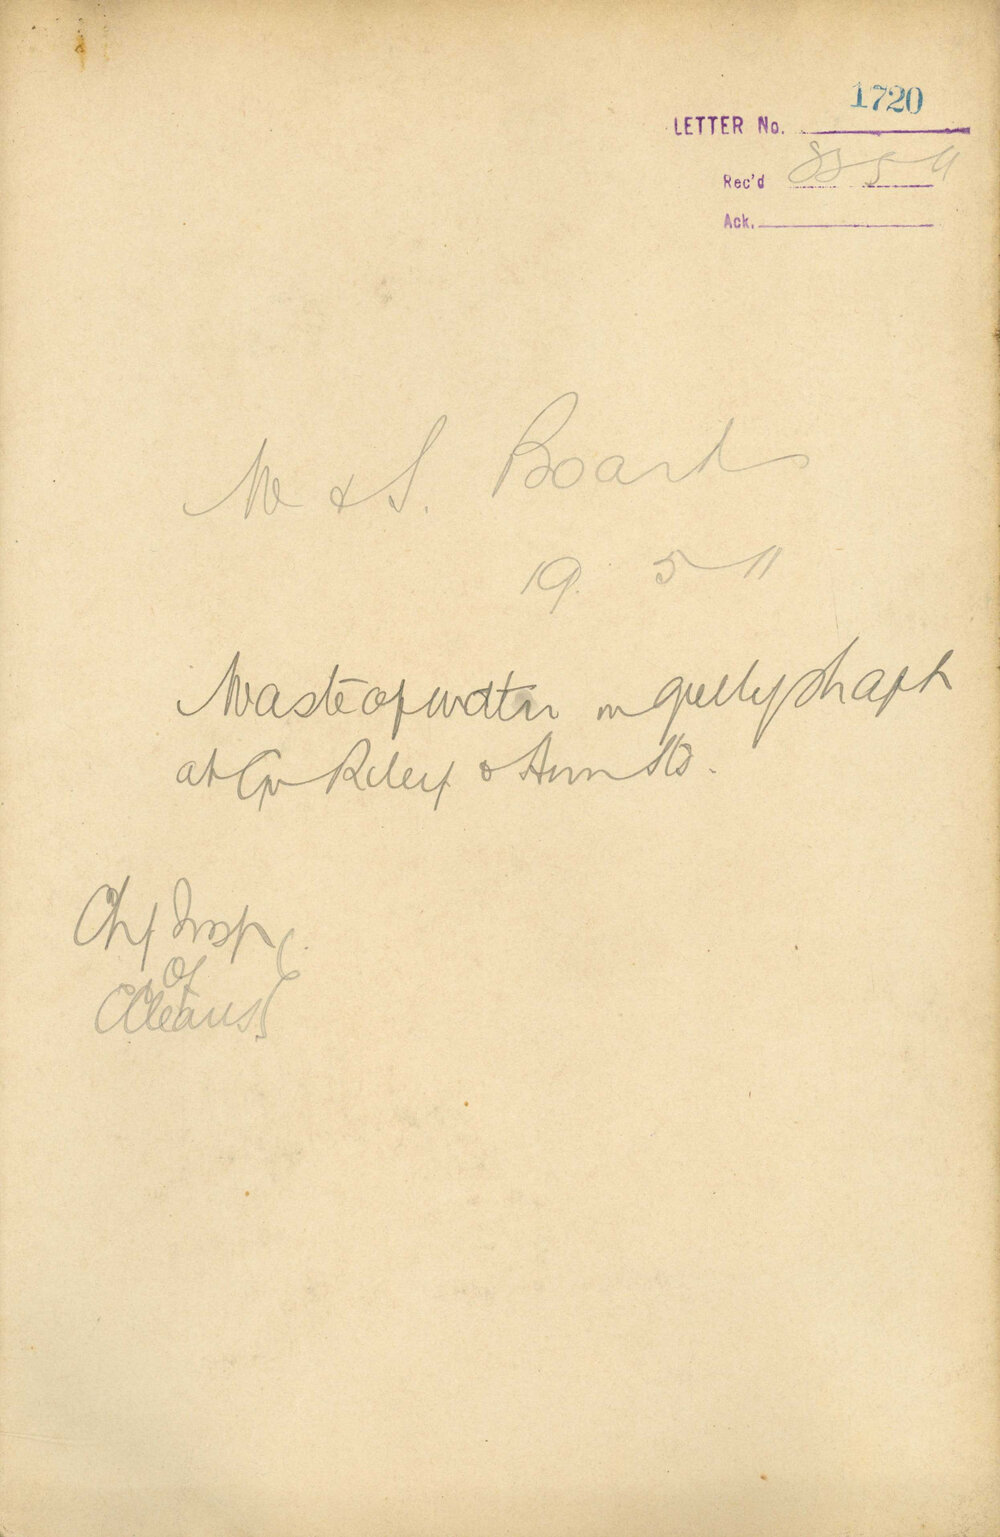 1720
LETTER No.
Rec'd 5 11
Ack.
W & S. Board
19. 5 11
Waste of water in gully shaft
at Cr Riley & Ann Sts.
Chf Insp
of
Cleans.